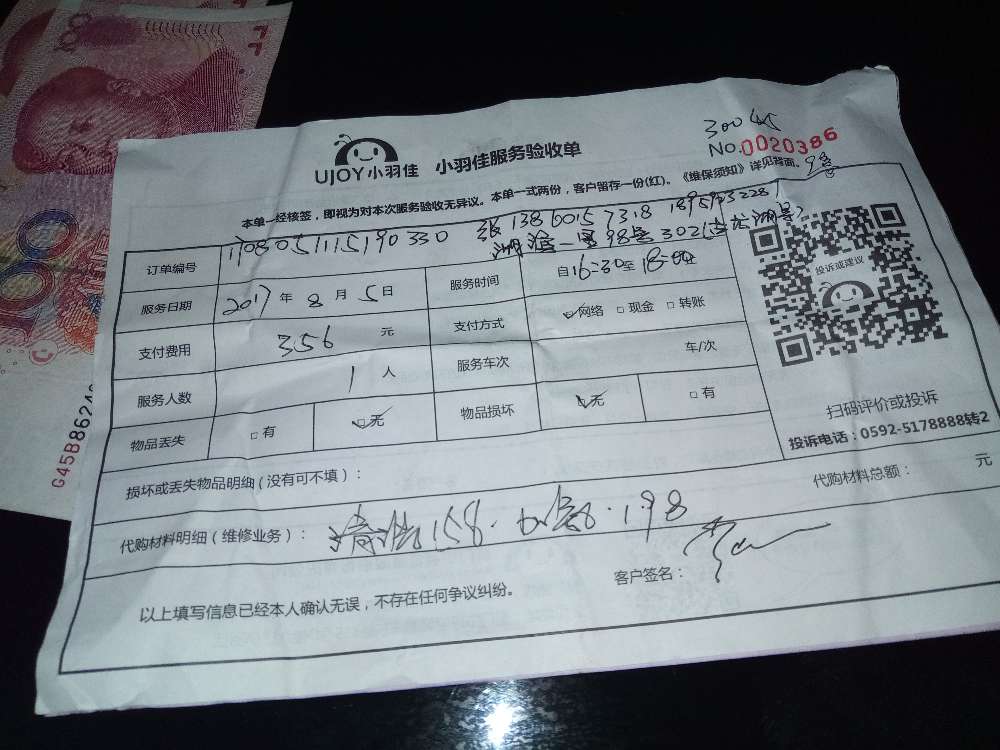 UJOY小羽佳 小羽佳服务验收单
NO.0020386
本单一经核签，即视为对本次服务验收无异议。本单一式两份，客户留存一份(红)。《维保须知》详见背面。
订单编号 1708051115190330 张 13860157318
湖滨一里98号302
服务日期 2017年8月5日 服务时间 自16:30至18:00
支付费用 356 元 支付方式 ☑网络 □现金 □转账
服务人数 1 人 服务车次 车/次
物品丢失 □有 ☑无 物品损坏 ☑无 □有
投诉或建议
扫码评价或投诉
投诉电话：0592-5178888转2
损坏或丢失物品明细(没有可不填)：
代购材料明细(维修业务)： 清洗158. 加氟.198
代购材料总额： 元
以上填写信息已经本人确认无误，不存在任何争议纠纷。 客户签名：
100
100
G45B8624